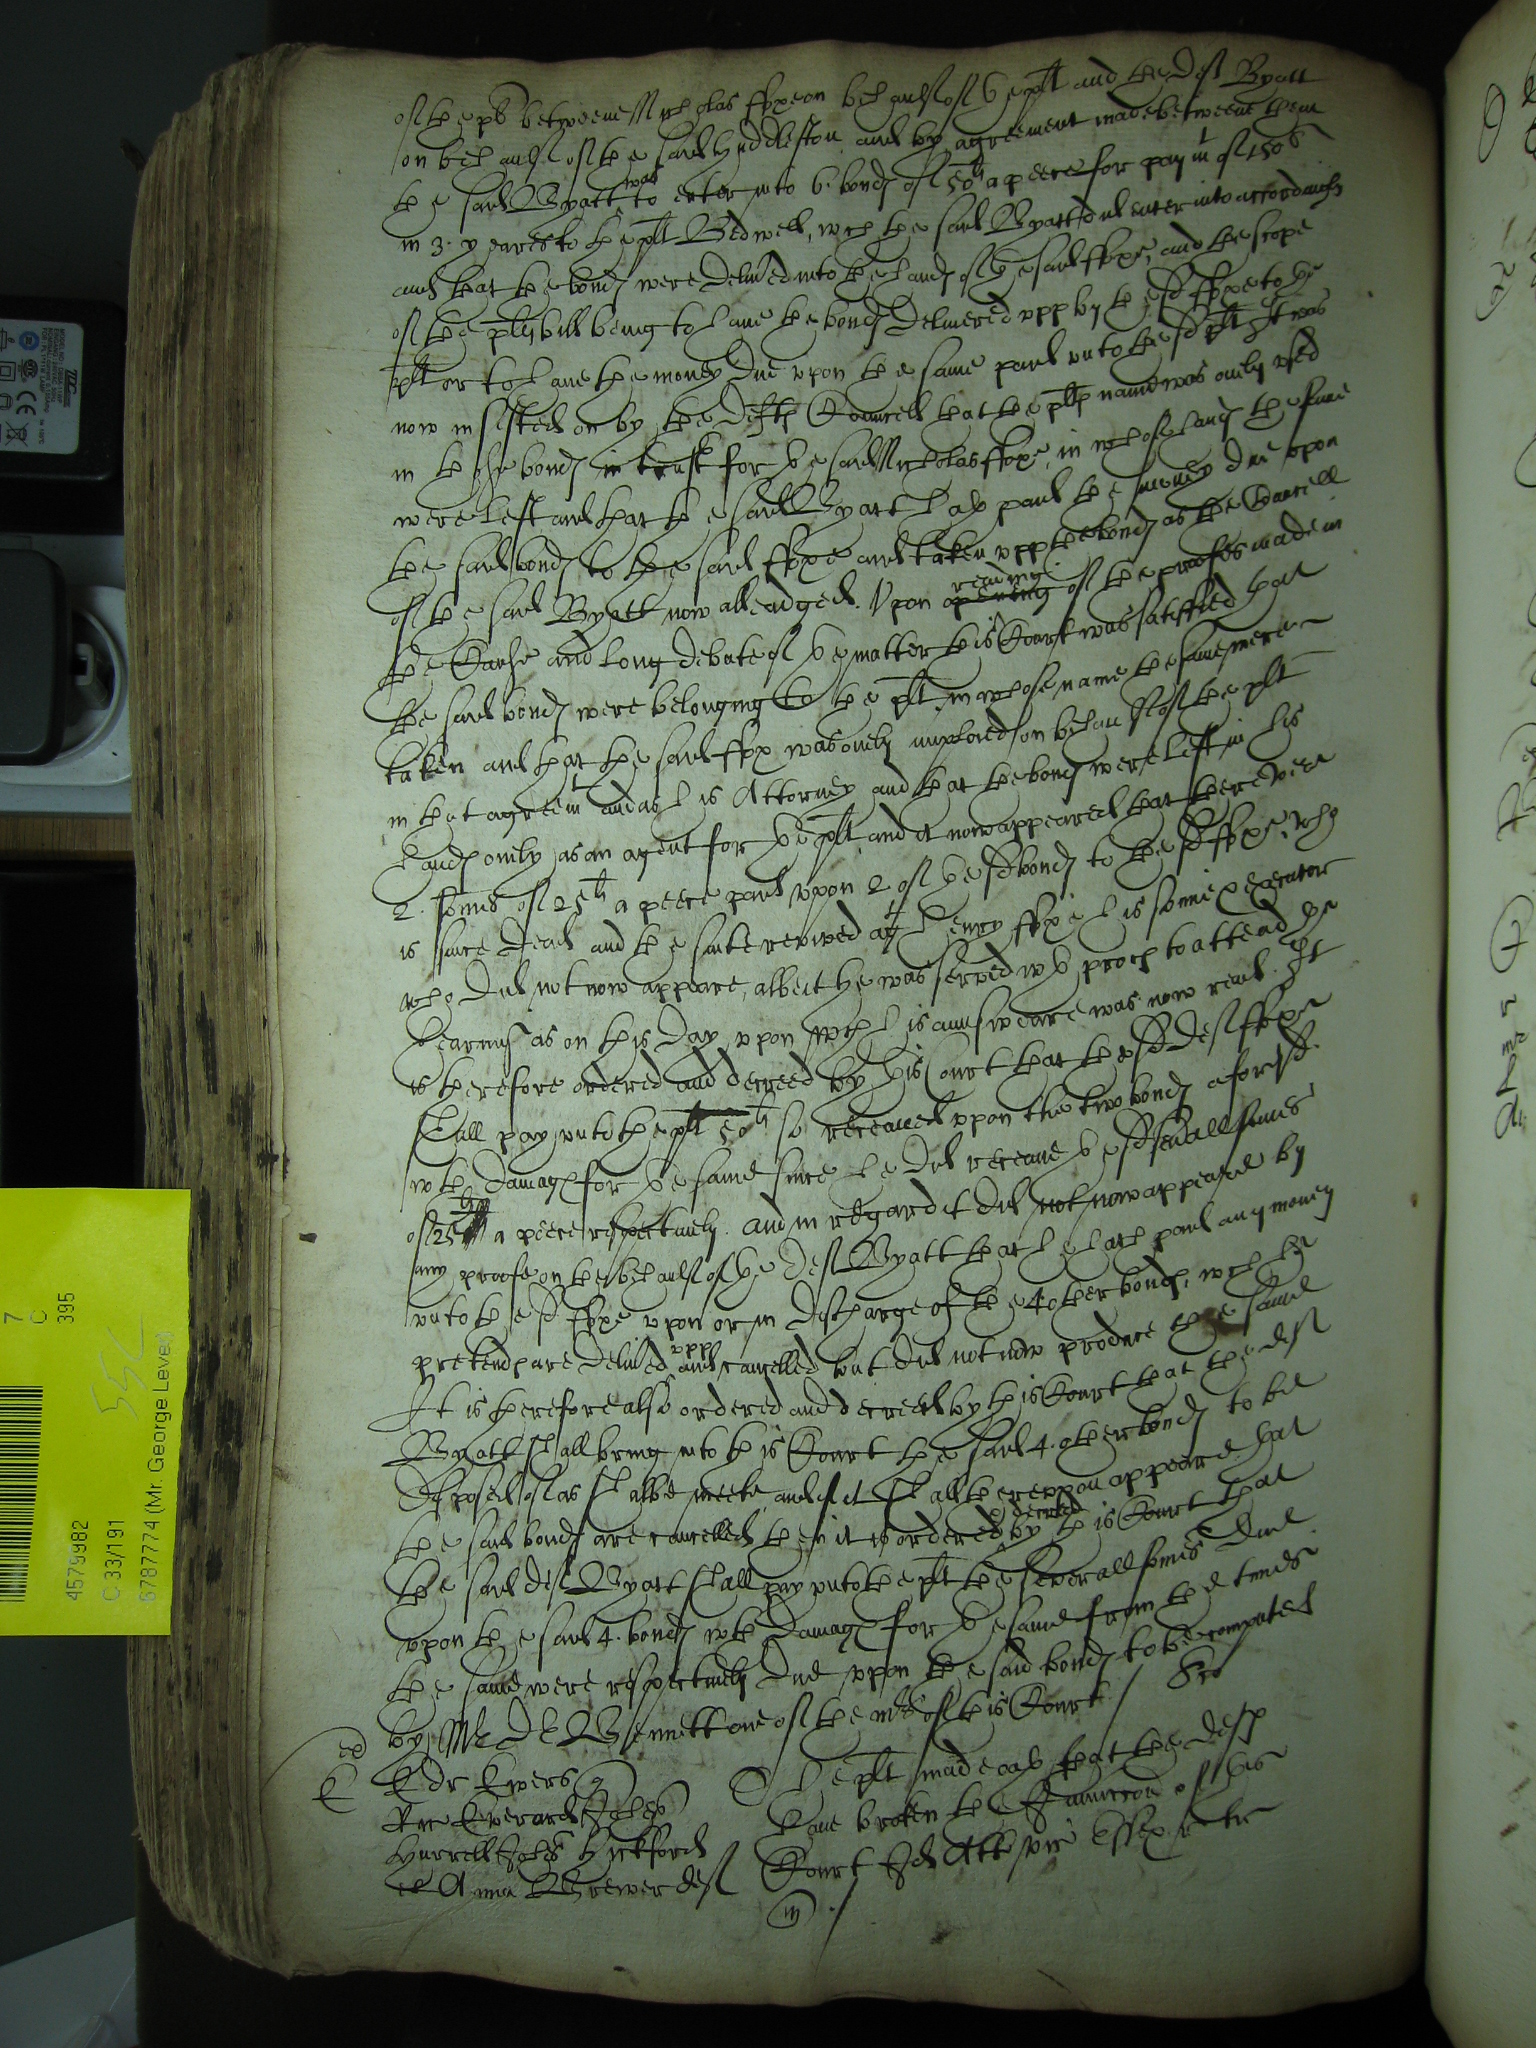 of the pts betweene Nicholas ffoxe on behaulf of ye plt and the def Byatt
on behaulf of the said Huddleston, and by agreement made betweene them
the said Byatt was to enter into 6. bonds of 50li a peece for paymt of 150li
in 3. yeares to the plt Bedwell, wch the said Byatt did enter into accordingly
and that the bonds were deliued into the hands of ye said ffoxe, and the scope
of the plts bill being to haue the bonds deliuered vpp by the sd ffoxe to ye
plt or to haue the money due vpon the same paid vnto the sd plt It was
now insisted on by the defts Councell that the plts name was onely vsed
in those bonds in trust for ye said Nicholas ffoxe, in whose hands the same
were left and that the said Byatt hath paid the money due vpon
the said bonds to the said ffoxe and taken vpp the bonds as the Councell
of the said Byatt now alleadged. Vpon opening reading of the proofes made in
the Cause and long debate of ye matter this Court was satisfied that
the said bonds were belonging to the plt in whose name the same were
taken and that the said ffox was onely imploied on behaulf of the plt
in that agreemt and as his Attorney and that the bonds were left in his
hands onely as an agent for ye plt, and it now appeared that there were
2. somes of 25li a peece paid vpon 2 of ye sd bonds to the sd ffoxe, who
is since dead and the suite revived agt Henry ffoxe his sonne & executor
who did not now appeare, albeit he was served wth proces to attend ye
hearing as on this day vpon wch his aunsweare was now read. It
is therefore ordered and decreed by this Court that the sd def ffoxe
shall pay vnto the plt 50li so receaued vpon the two bonds aforesd.
wth damags for ye same since he did receaue ye sd seuall somes
of 25li a peece respectiuely. And in regard it did not now appeare by
any proofe on the behaulf of ye def Byatt that he hath paid any money
vnto the sd ffoxe vpon or in discharge of the 4 other bonds, wch he
pretends are deliued vpp and cancelled but did not now produce the same
It is therefore also ordered and decreed by this Court that the def
Byatt shall bring into this Court the said 4. other bonds to be
disposed of as shalbe meete, and if it shall therevpon appeare that
the said bonds are cancelled then it is ordered & decreed by this Court that
the said def Byatt shall pay vnto the plt the severall somes due
vpon the said 4. bonds wth damags for ye same from the times
the same were respectiuely due vpon the said bonds to be computed
by Mr Dr Bennett one of the mrs of this Court / &c
Edr Ewers q
Ric Everard
Hurrell Hickford
et Anna Brewer def
The plt made oath that the defts
haue broken the Iniunccon of this
Court Essex